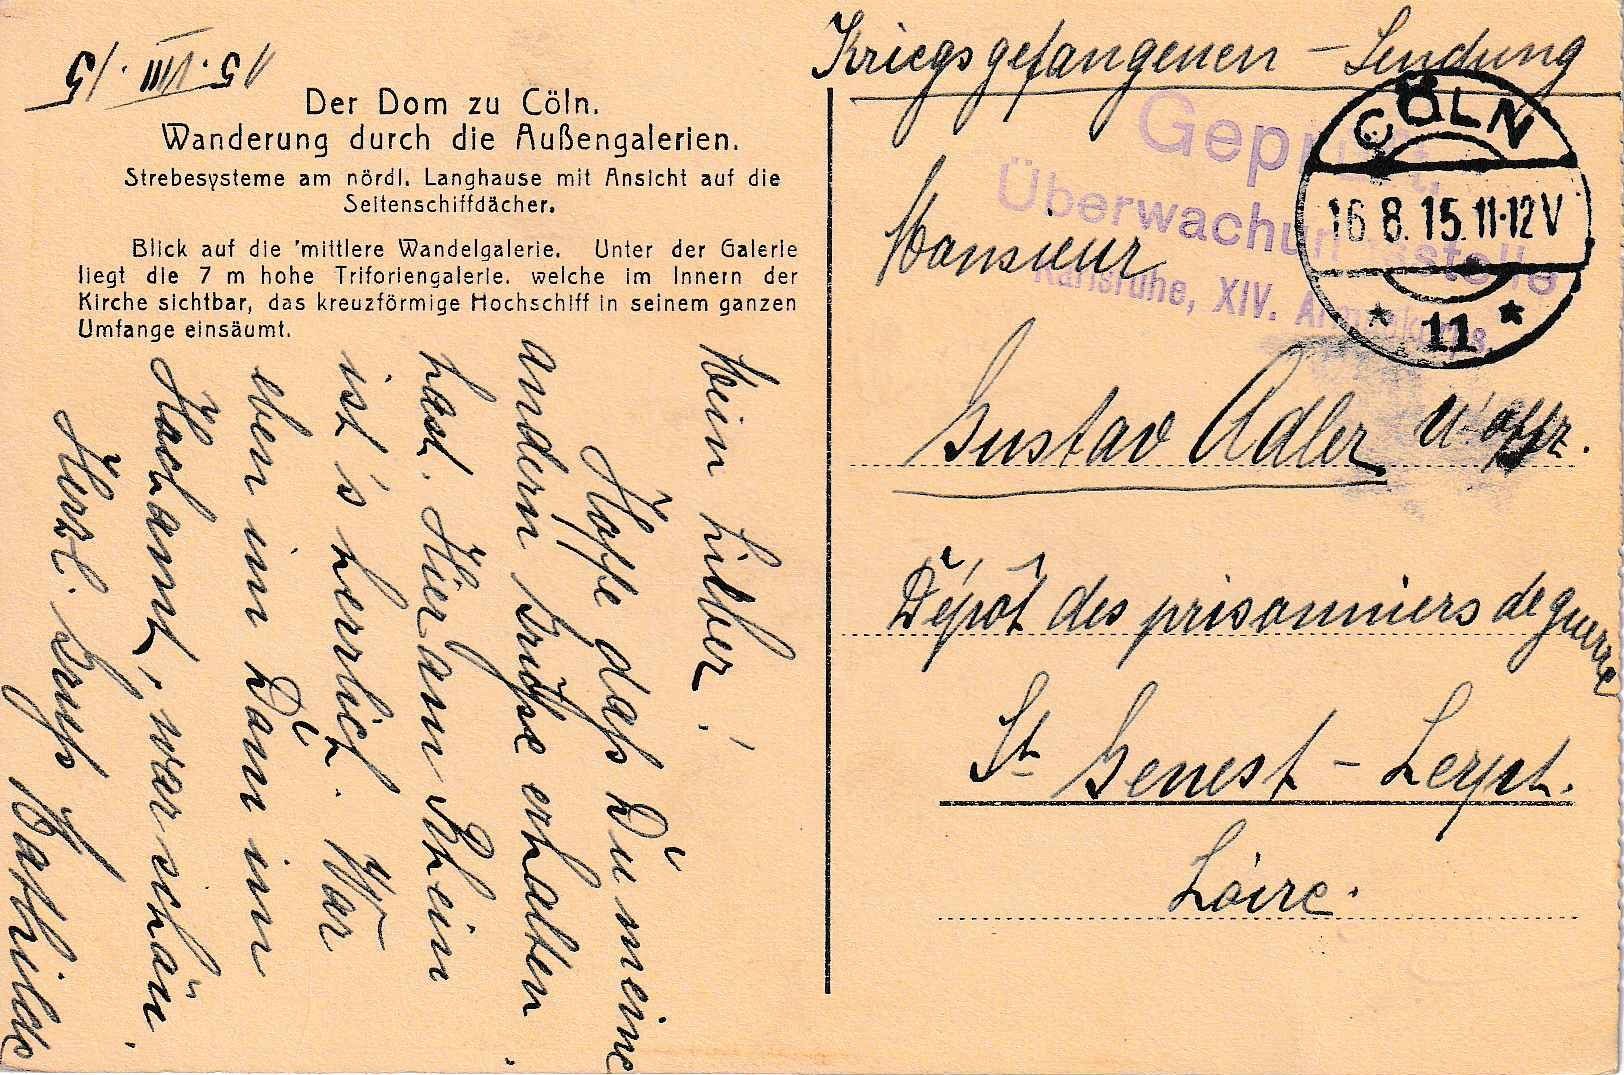 15.VIII.15
Der Dom zu Cöln.
Wanderung durch die Außengalerien.
Strebesysteme am nördl. Langhause mit Ansicht auf die
Seitenschiffdächer.
Blick auf die 'mittlere Wandelgalerie. Unter der Galerie
liegt die 7 m hohe Triforiengalerie, welche im Innern der
Kirche sichtbar, das kreuzförmige Hochschiff in seinem ganzen
Umfange einsäumt.
Mein Lieber!
Hoffe dass Du meine
andern Grüsse erhalten
hast. Hier am Rhein
ist's herrlich. War
eben im Dom im
Hochamt, war schön.
Herzl. Gruß Mathilde
Kriegsgefangenen - Sendung
Geprüft
Überwachungsstelle
Karlsruhe, XIV. Armeekorps.
CÖLN
16.8.15.11-12V
* 11 *
Monsieur
Gustav Adler U'offz.
Dépôt des prisonniers de guerre
St Genest - Lerpt.
Loire.